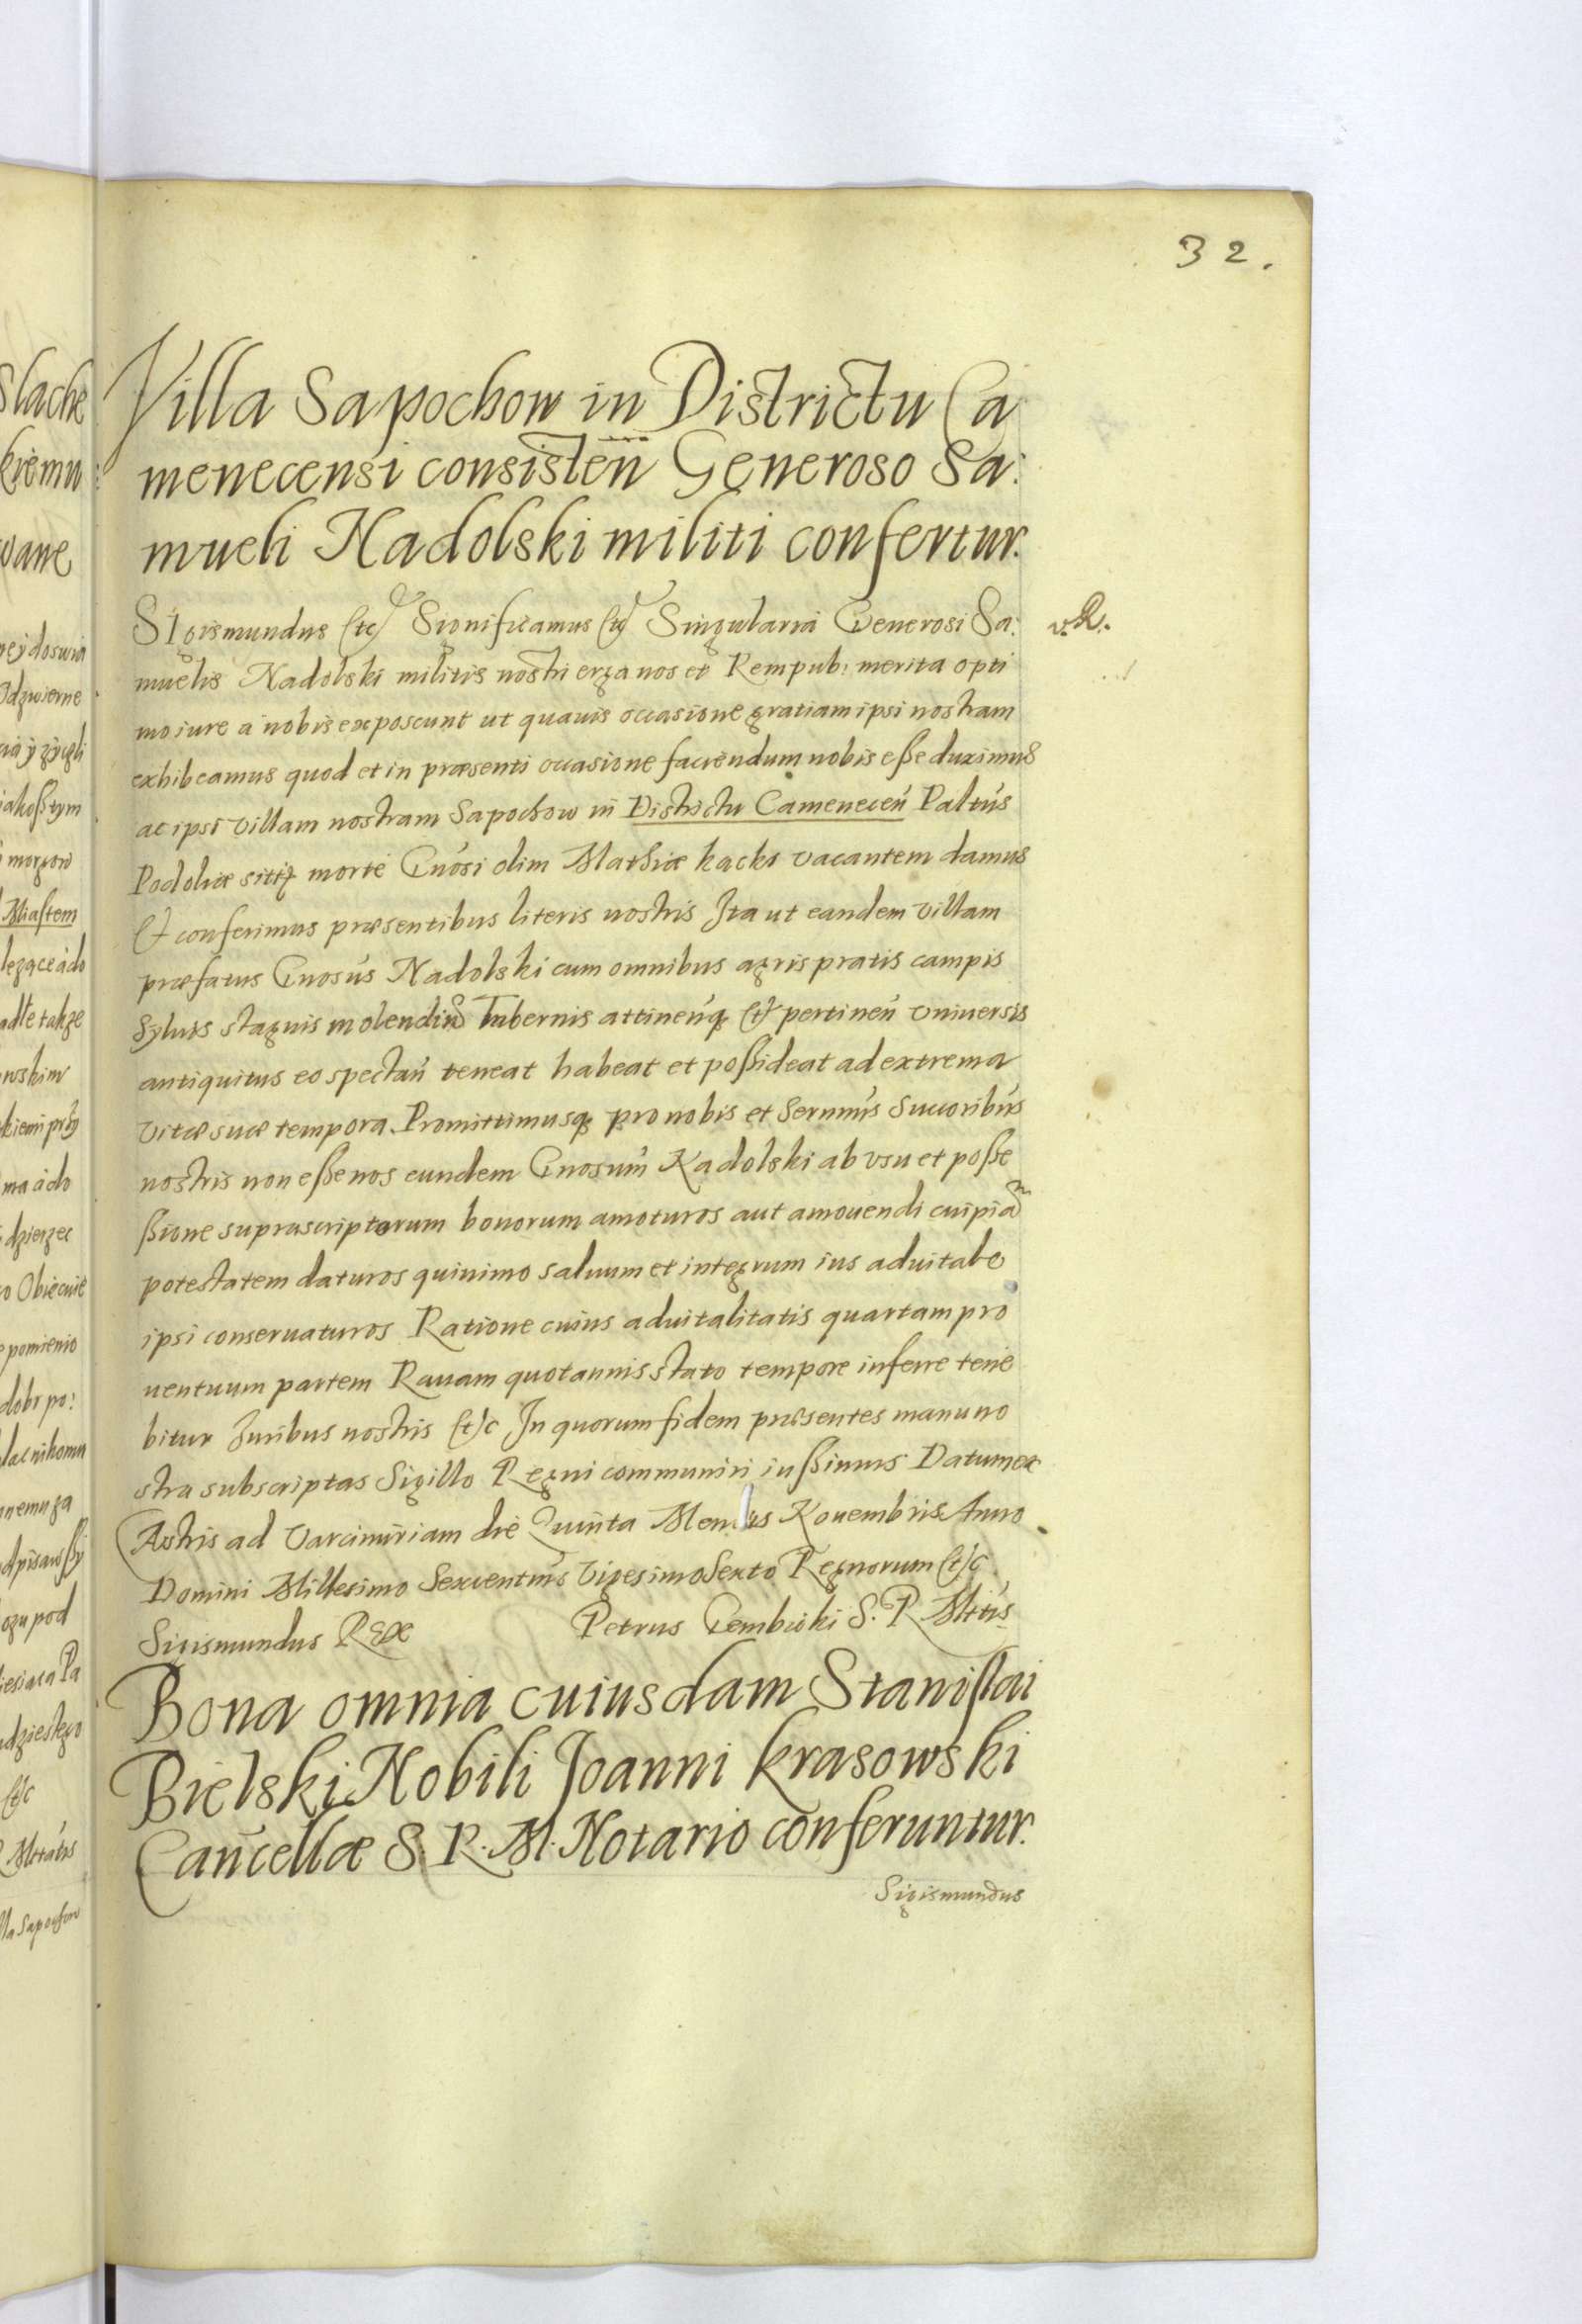 32.
Villa Sapochow in Districtu Ca
menecensi consisteñ Generoso Sa:
mueli Nadolski militi confertur.
Sigismundus etc Significamus etc Singularia Generosi Sa:
v. R.
muelis Nadolski militis nostri erga nos et Rempub: merita opti
mo iure a nobis exposcunt ut quauis occasione gratiam ipsi nostram
exhibeamus quod et in præsenti occasione faciendum nobis eße duximus
ac ipsi villam nostram Sapochow in Districtu Cameneceñ Paltus
Podoliæ sitã morte Gnosi olim Mathiæ kacki vacantem damus
Et conferimus præsentibus literis nostris Ita ut eandem villam
præfatus Gnosus Nadolski cum omnibus agris pratis campis
Syluis stagnis molendiñ Tabernis attineñq et pertineñ vniuersis
antiquitus eo spectañ teneat habeat et poßideat ad extrema
vitæ suæ tempora. Promittimusq pro nobis et Sernmis Succoribus
nostris non eße nos eundem Gnosum Nadolski ab vsu et poße
ßione suprascriptorum bonorum amoturos aut amouendi cuipiã
potestatem daturos quinimo saluum et integrum ius aduitale
ipsi conseruaturos Ratione cuius aduitalitatis quartam pro
uentuum partem Rauam quotannis stato tempore inferre tene
bitur Juribus nostris etc In quorum fidem præsentes manu no
stra subscriptas Sigillo Regni communiri iußimus Datum ex
Castris ad Varcimiriam die Quinta Mensis Nouembris Anno
Domini Millesimo Sexcentmo Vigesimo Sexto Regnorum etc
Sigismundus Rex Petrus Gembicki S. R. Mttis
Bona omnia cuiusdam Stanislai
Bielski Nobili Joanni krasowski
Cancellæ S. R. M. Notario conferuntur.
Sigismundus